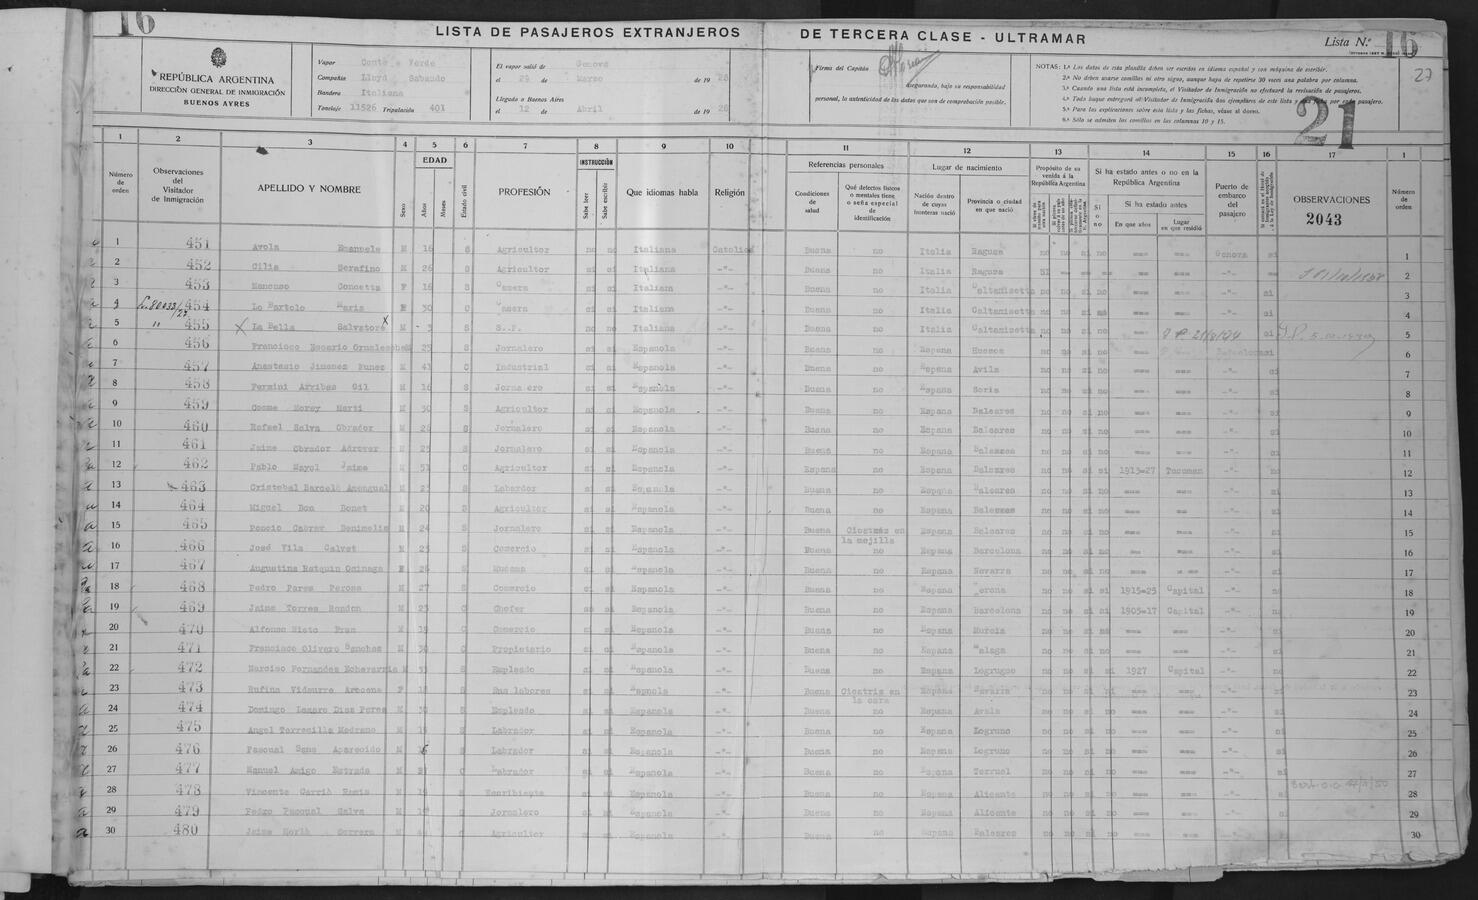 16
LISTA DE PASAJEROS EXTRANJEROS DE TERCERA CLASE - ULTRAMAR
Lista N.º 16
27
REPÚBLICA ARGENTINA
DIRECCIÓN GENERAL DE INMIGRACIÓN
BUENOS AYRES
Vapor Conte Verde
Compañía Lloyd Sabaudo
Bandera Italiana
Tonelaje 11526 Tripulación 401
El vapor salió de Genova
el 29 de Marzo de 1928
Llegado a Buenos Aires
el 12 de Abril de 1928
Firma del Capitán
asegurando, bajo su responsabilidad
personal, la autenticidad de los datos que son de comprobación posible.
NOTAS: 1.ª Los datos de esta planilla deben ser escritos en idioma español y con máquina de escribir.
2.ª No deben usarse comillas ni otro signo, aunque haya de repetirse 30 veces una palabra por columna.
3.ª Cuando una lista esté incompleta, el Visitador de Inmigración no efectuará la revisación de pasajeros.
4.ª Todo buque entregará al Visitador de Inmigración dos ejemplares de este lista y una ficha por cada pasajero.
5.ª Para las explicaciones sobre esta lista y las fichas, véase al dorso.
6.ª Sólo se admiten las comillas en las columnas 10 y 15.
21
1 2 3 4 5 6 7 8 9 10 11 12 13 14 15 16 17 1
Número de orden
Observaciones del Visitador de Inmigración
APELLIDO Y NOMBRE
Sexo
EDAD
Años
Meses
Estado civil
PROFESIÓN
INSTRUCCIÓN
Sabe leer
Sabe escribir
Que idiomas habla
Religión
Referencias personales
Condiciones de salud
Qué defectos físicos o mentales tiene o seña especial de identificación
Lugar de nacimiento
Nación dentro de cuyas fronteras nació
Provincia o ciudad en que nació
Propósito de su venida á la República Argentina
Si ha estado antes o no en la República Argentina
Si o no
Si ha estado antes
En que años
Lugar en que residió
Puerto de embarco del pasajero
OBSERVACIONES
2043
Número de orden
1 451 Avola Emanuele M 16 S Agricultor no no Italiana Catolica Buena no Italia Ragusa no no si no Genova si 1
2 452 Cilia Serafino M 26 S Agricultor si si Italiana -"- Buena no Italia Ragusa SI 2
3 453 Mancuso Concetta F 16 S Casera si si Italiana -"- Buena no Italia Caltanisetta no no si no -"- si 3
4 454 Lo Bartolo Maria F 30 C Casera si si Italiana -"- Buena no Italia Caltanisetta no no si no -"- si 4
5 " 455 X La Bella Salvatore X M 3 S S.P. no no Italiana -"- Buena no Italia Caltanisetta no no si no si 5
6 456 Francisco Rosario M 25 S Jornalero si si Espanola -"- Buena no Espana Huesca no no si no Barcelona si 6
7 457 Anastasio Jimenez Nunez M 41 C Industrial si si Espanola -"- Buena no Espana Avila no no si no -"- si 7
8 458 Fermini Arribas Gil M 16 S Jornalero si si Espanola -"- Buena no Espana Soria no no si no -"- si 8
9 459 Cosme Morey Marti M 30 S Agricultor si si Espanola -"- Buena no Espana Baleares no no si no -"- si 9
10 460 Rafael Salva Obrador M 26 S Jornalero si si Espanola -"- Buena no Espana Baleares no no si no -"- si 10
11 461 Jaime Obrador Adrover M 25 S Jornalero si si Espanola -"- Buena no Espana Baleares no no si no -"- si 11
12 462 Pablo Mayol Jaime M 51 C Agricultor si si Espanola -"- Espana no Espana Baleares no no si si 1913=27 Tucuman -"- no 12
13 463 Cristobal Barceló Amengual M 25 S Labardor si si Espanola -"- Buena no Espana Baleares no no si no -"- si 13
14 464 Miguel Bon Bonet M 20 S Agricultor si si Espanola -"- Buena no Espana Baleares no no si no -"- si 14
15 465 Poncio Cabrer Benimelis M 24 S Jornalero si si Espanola -"- Buena Cicatriz en la mejilla Espana Baleares no no si no -"- si 15
16 466 José Vila Calvet M 25 S Comercio si si Espanola -"- Buena no Espana Barcelona no no si no -"- si 16
17 467 Augustina F 26 S si si Espanola -"- Buena no Espana Navarra no no si no -"- si 17
18 468 Pedro Pares Perosa M 27 S Comercio si si Espanola -"- Buena no Espana Gerona no no si si 1915=25 Capital -"- no 18
19 469 Jaime Torres Rondon M 23 C Chofer si si Espanola -"- Buena no Espana Barcelona no no si si 1905=17 Capital -"- no 19
20 470 Alfonso Nieto M 19 C Comercio si si Espanola -"- Buena no Espana Murcia no no si no -"- si 20
21 471 Francisco Olivero Sanchez M 30 C Propietario si si Espanola -"- Buena no Espana Malaga no no si no -"- si 21
22 472 Narciso Fernandez Echevarria M S Empleado si si Espanola -"- Buena no Espana Logrugno no no si si 1927 Capital -"- no 22
23 473 Rufina Vidaurre F 18 S Sus labores si si Espanola -"- Buena Cicatriz en la cara Espana Navarra no no si no -"- si 23
24 474 Domingo Lazaro Diaz Perez M 30 S Empleado si si Espanola -"- Buena no Espana Avala no no si no -"- si 24
25 475 Angel Torrecilla Medrano M S Labrador si si Espanola -"- Buena no Espana Logruno no no si no -"- si 25
26 476 Pascual Sanz Aparecido M 16 S Labrador si si Espanola -"- Buena no Espana Logruno no no si no -"- si 26
27 477 Manuel Amigo Estrada M C Labrador si si Espanola -"- Buena no Espana Terruel no no si no -"- si 27
28 478 Vincente Garriá M 19 S Escribiente si si Espanola -"- Buena no Espana Alicante no no si no -"- si 28
29 479 Pedro Pascual Salva M S Jornalero si si Espanola -"- Buena no Espana Alicante no no si no -"- si 29
30 480 Jaime M C Agricultor si si Espanola -"- Buena no Espana Baleares no no si no -"- si 30